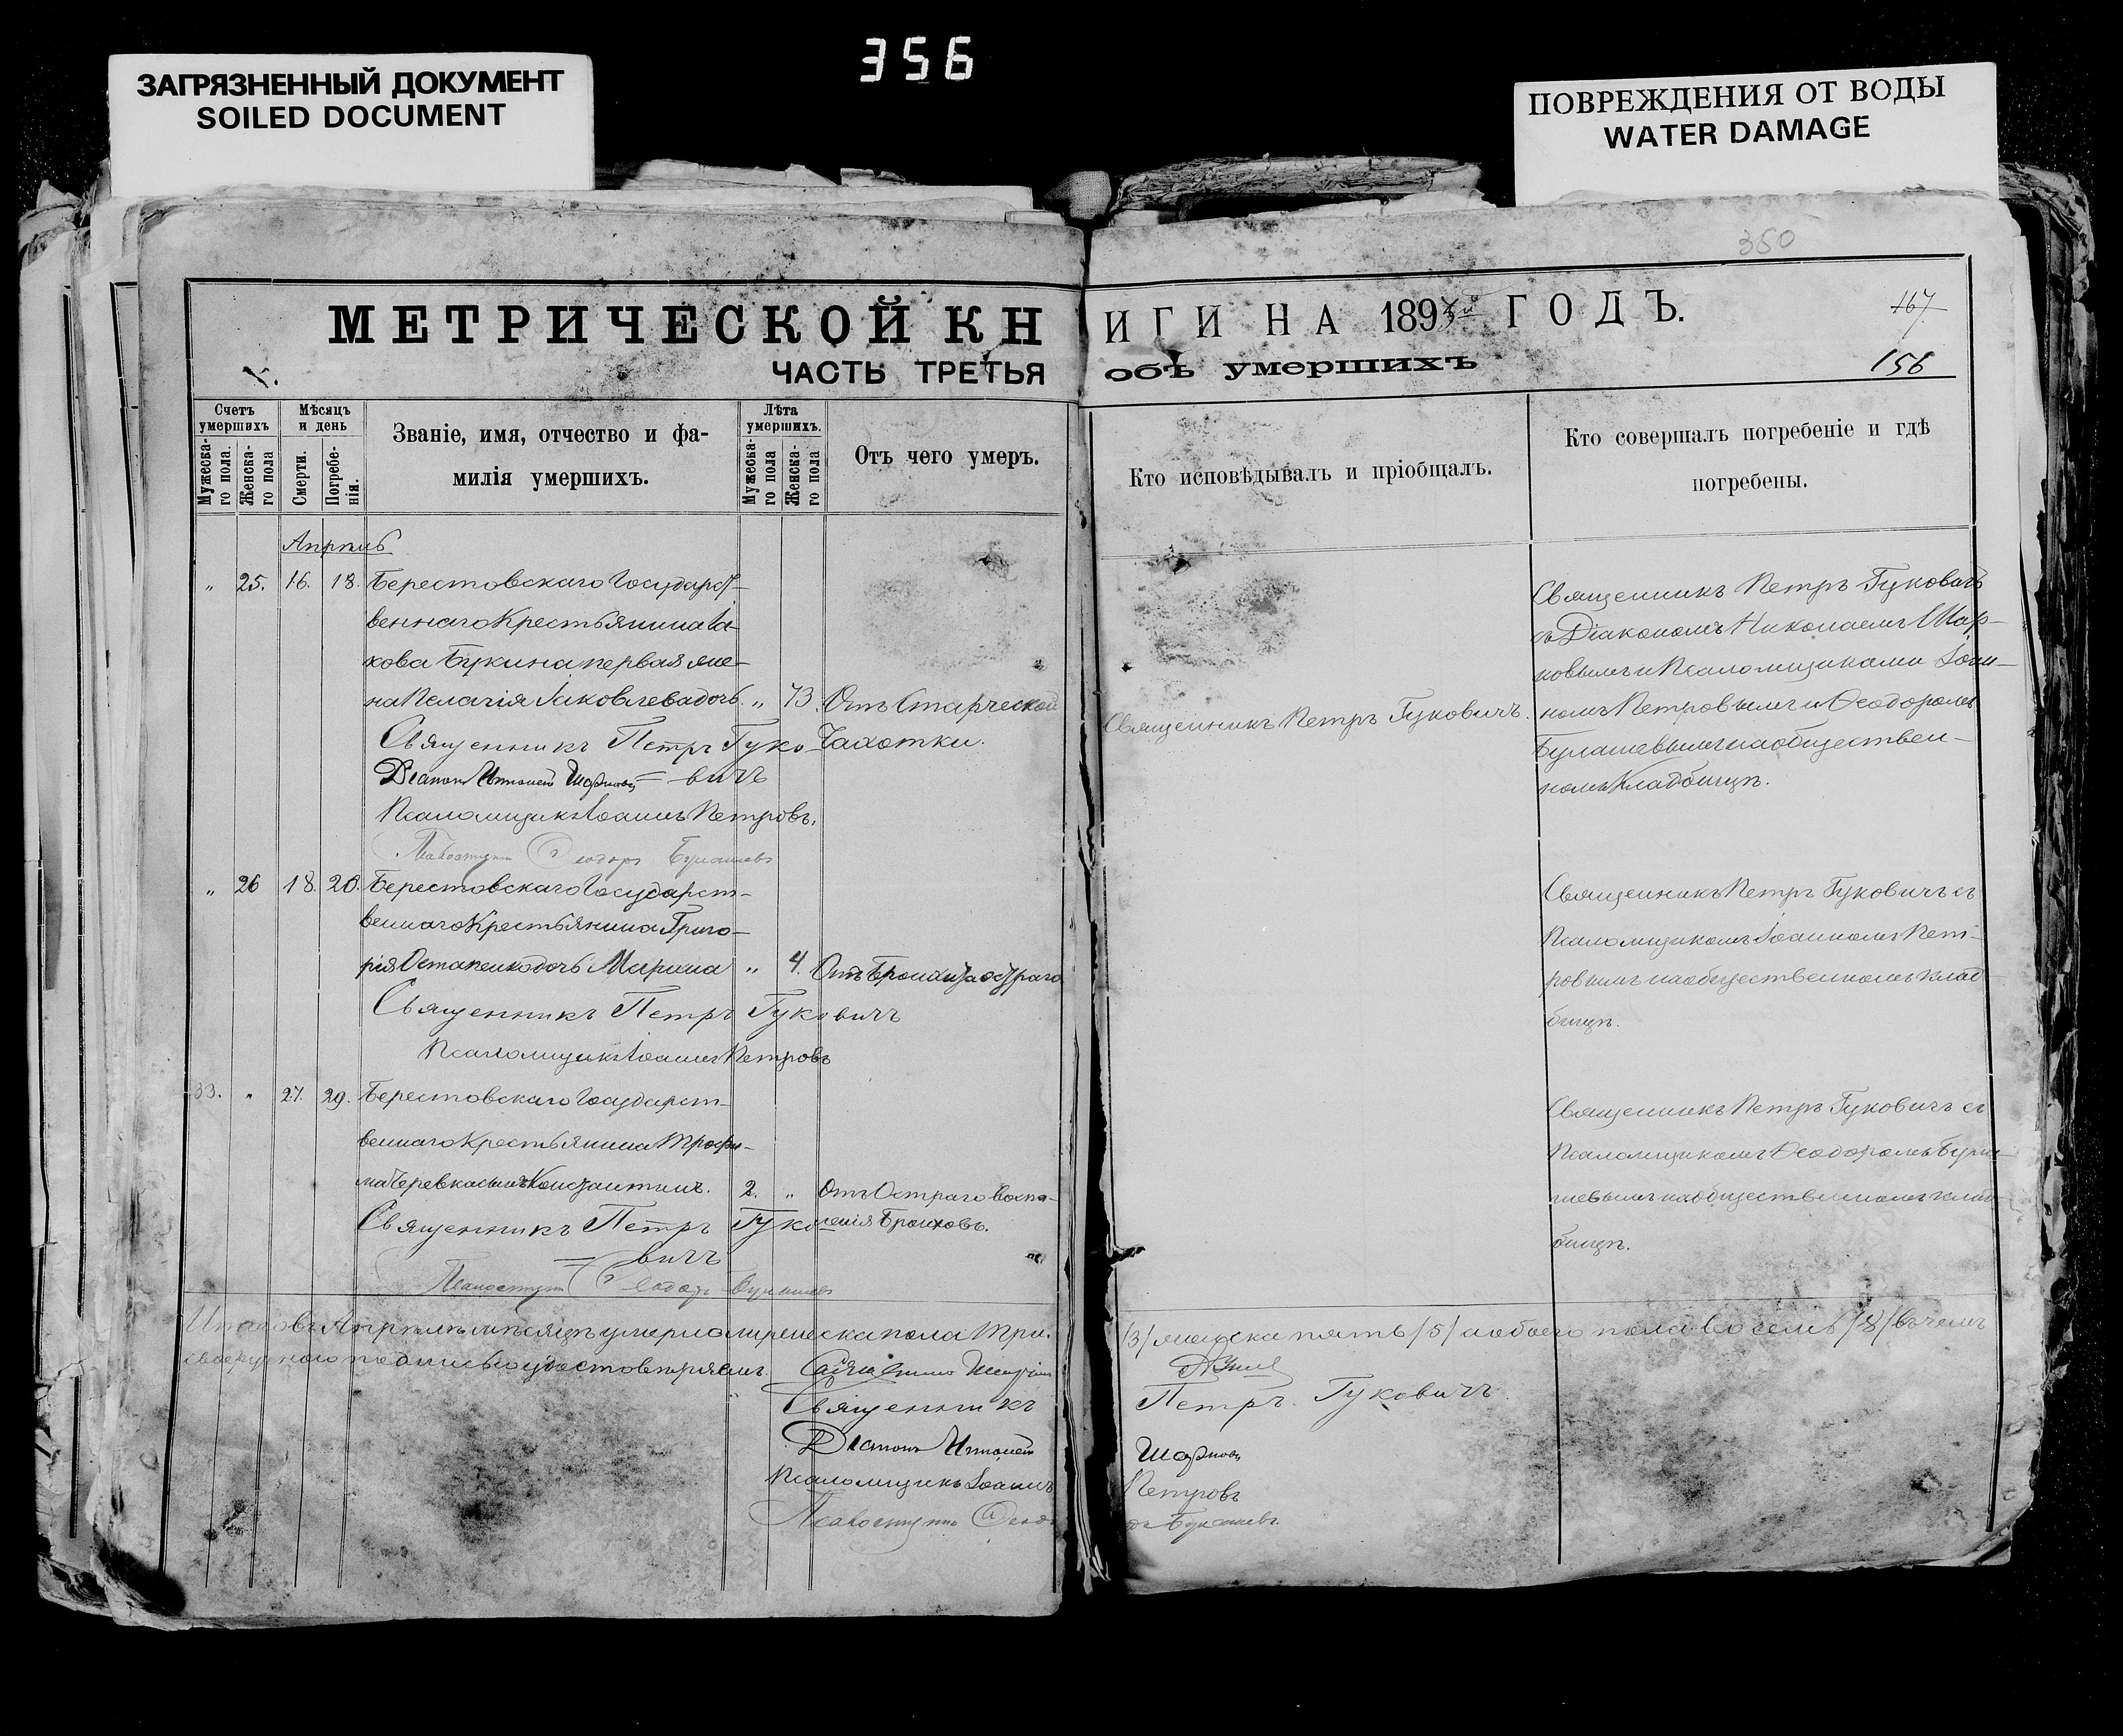 356
ЗАГРЯЗНЕННЫЙ ДОКУМЕНТ
SOILED DOCUMENT
ПОВРЕЖДЕНИЯ ОТ ВОДЫ
WATER DAMAGE
350
МЕТРИЧЕСКОЙ КН
ЧАСТЬ ТРЕТЬЯ
ИГИ НА 189 ГОДЪ.
объ умершихъ
167
156
Счетъ умершихъ
Мужеска-го пола.
Женска-го пола
Мѣсяцъ и день
Смерти.
Погребе-нія.
Званіе, имя, отчество и фа-
милія умершихъ.
Лѣта умершихъ.
Мужеска-го пола
Женска-го пола
Отъ чего умеръ.
Кто исповѣдывалъ и пріобщалъ.
Кто совершалъ погребеніе и гдѣ
погребены.
Апрѣль
„ 25. 16. 18. Берестовскаго Государст-
веннаго Крестьянина Іа-
кова Букина первая же-
на Пелагія Іаковлева дочь. „ 73. Отъ Старческой
Чахотки.
Священникъ Петръ Гуко-
вичъ
Діаконъ Николай Шарковъ
Псаломщикъ Іоаннъ Петровъ.
Псаломщикъ Ѳеодоръ
Священникъ Петръ Гуковичъ.
Священникъ Петръ Гуковичъ
съ Діакономъ Николаемъ Шар-
ковымъ и Псаломщиками Іоан-
номъ Петровымъ и Ѳеодоромъ
на обществен-
номъ Кладбищѣ.
„ 26 18. 20. Берестовскаго Государст-
веннаго Крестьянина Григо-
рія Остапенко дочь Марина „ 4. Отъ Бронхита остраго
Священникъ Петръ Гуковичъ
Псаломщикъ Іоаннъ Петровъ
Священникъ Петръ Гуковичъ съ
Псаломщикомъ Іоанномъ Пет-
ровымъ на общественномъ клад-
бищѣ.
33. „ 27. 29. Берестовскаго Государст-
веннаго Крестьянина Трофи-
ма Черевка сынъ Константинъ. 2. „ Отъ Остраго воспа-
ленія Бронховъ.
Священникъ Петръ Гуко-
вичъ
Псаломщикъ Ѳеодоръ
Священникъ Петръ Гуковичъ съ
Псаломщикомъ Ѳеодоромъ
на общественномъ клад-
бищѣ.
Итого въ Апрѣлѣ мѣсяцѣ умерло мужеска пола три. /3/ женска пять /5/ а обоего пола восемь /8/ въ чемъ
своеручною подписью удостовѣряемъ.
Священникъ Петръ Гуковичъ
Діаконъ Николай Шарковъ
Псаломщикъ Іоаннъ Петровъ
Псаломщикъ